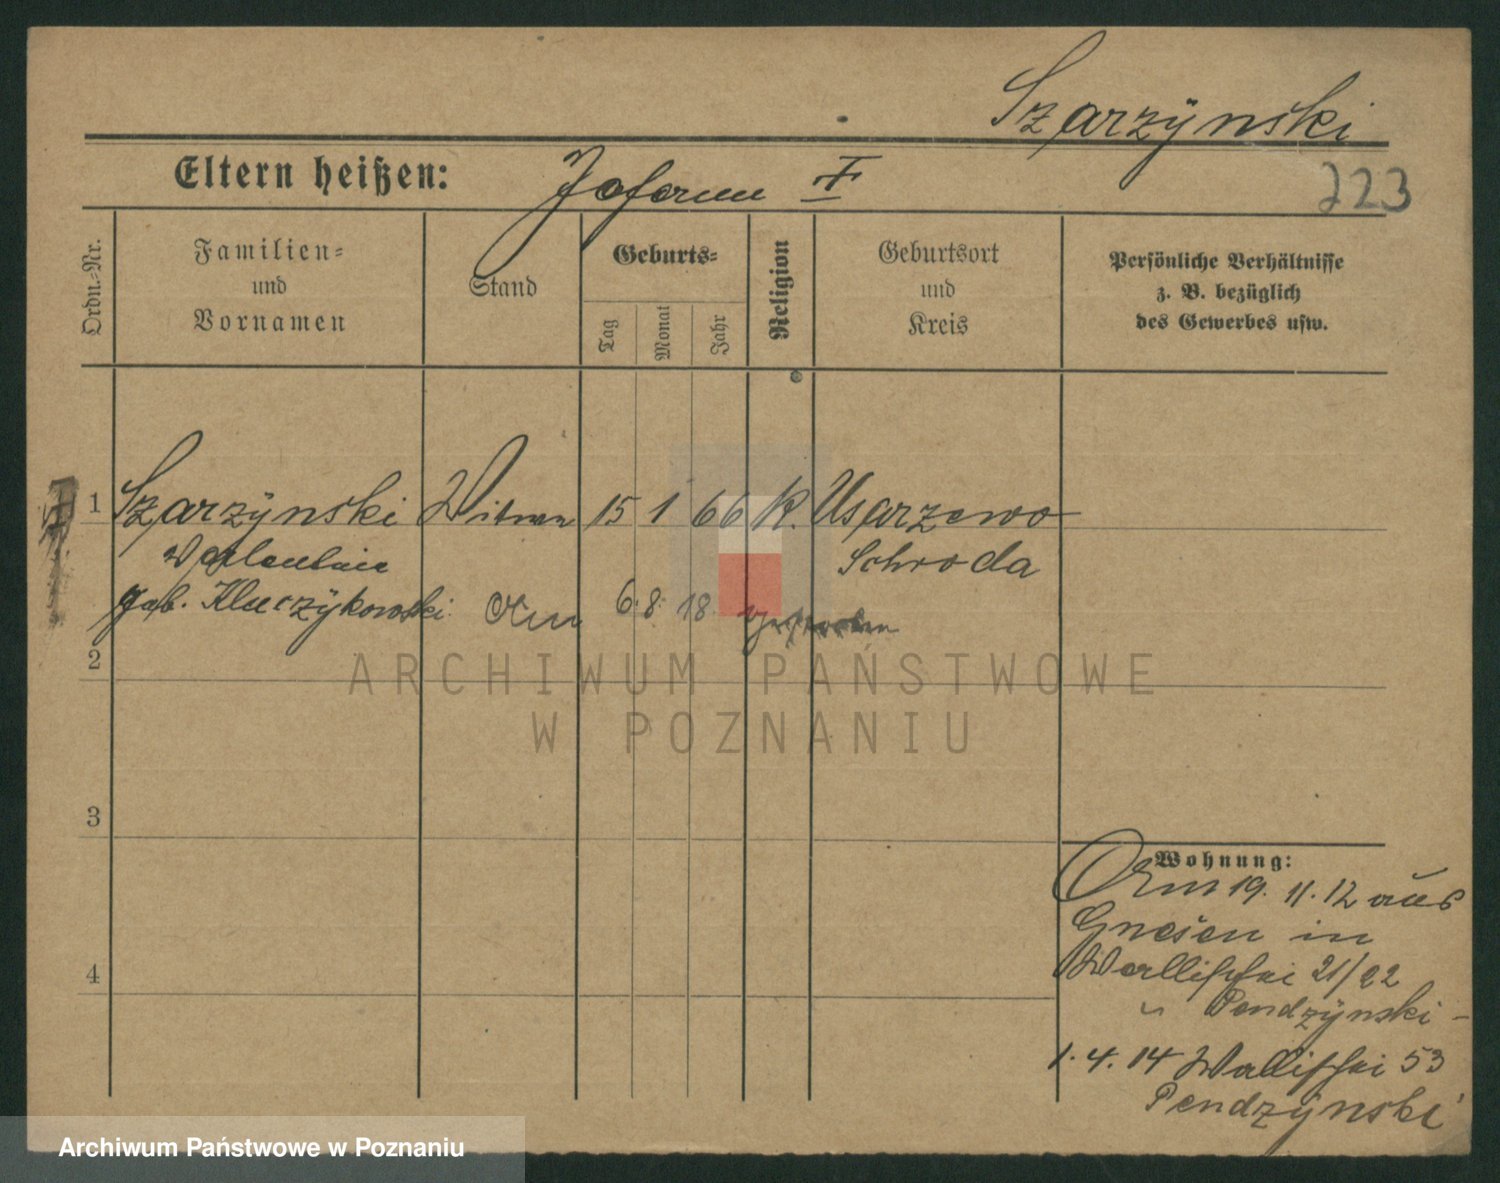 Szarzÿnski
Eltern heißen: Johann †
223
Ordn.-Nr.
Familien-
und
Vornamen
Stand
Geburts-
Tag
Monat
Jahr
Religion
Geburtsort
und
Kreis
Persönliche Verhältnisse
z. B. bezüglich
des Gewerbes usw.
1 Szarzÿnski Witwe 15 1 66 K. Usarzewo
Schroda
geb. Kluczÿkowski 6. 8. 18. Gestorben
2
ARCHIWUM PAŃSTWOWE
W POZNANIU
3
4
Wohnung:
19. 11. 12 aus
Gnesen in
Wallischei 21/22
Pendzÿnski
1. 4. 14 Wallischei 53
Pendzÿnski
Archiwum Państwowe w Poznaniu